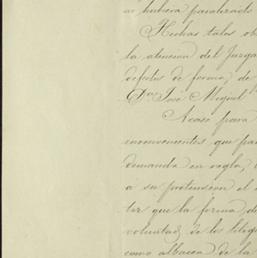 ar hubiera paralizado
Hechas tales ob
la atencion del Juzga
defectos de forma de
Dn. José Miguel
Acaso para
inconvenientes que pa
demanda en regla,
a su pretension el
ter que la forma de
voluntad, de los litig
como albacea de la